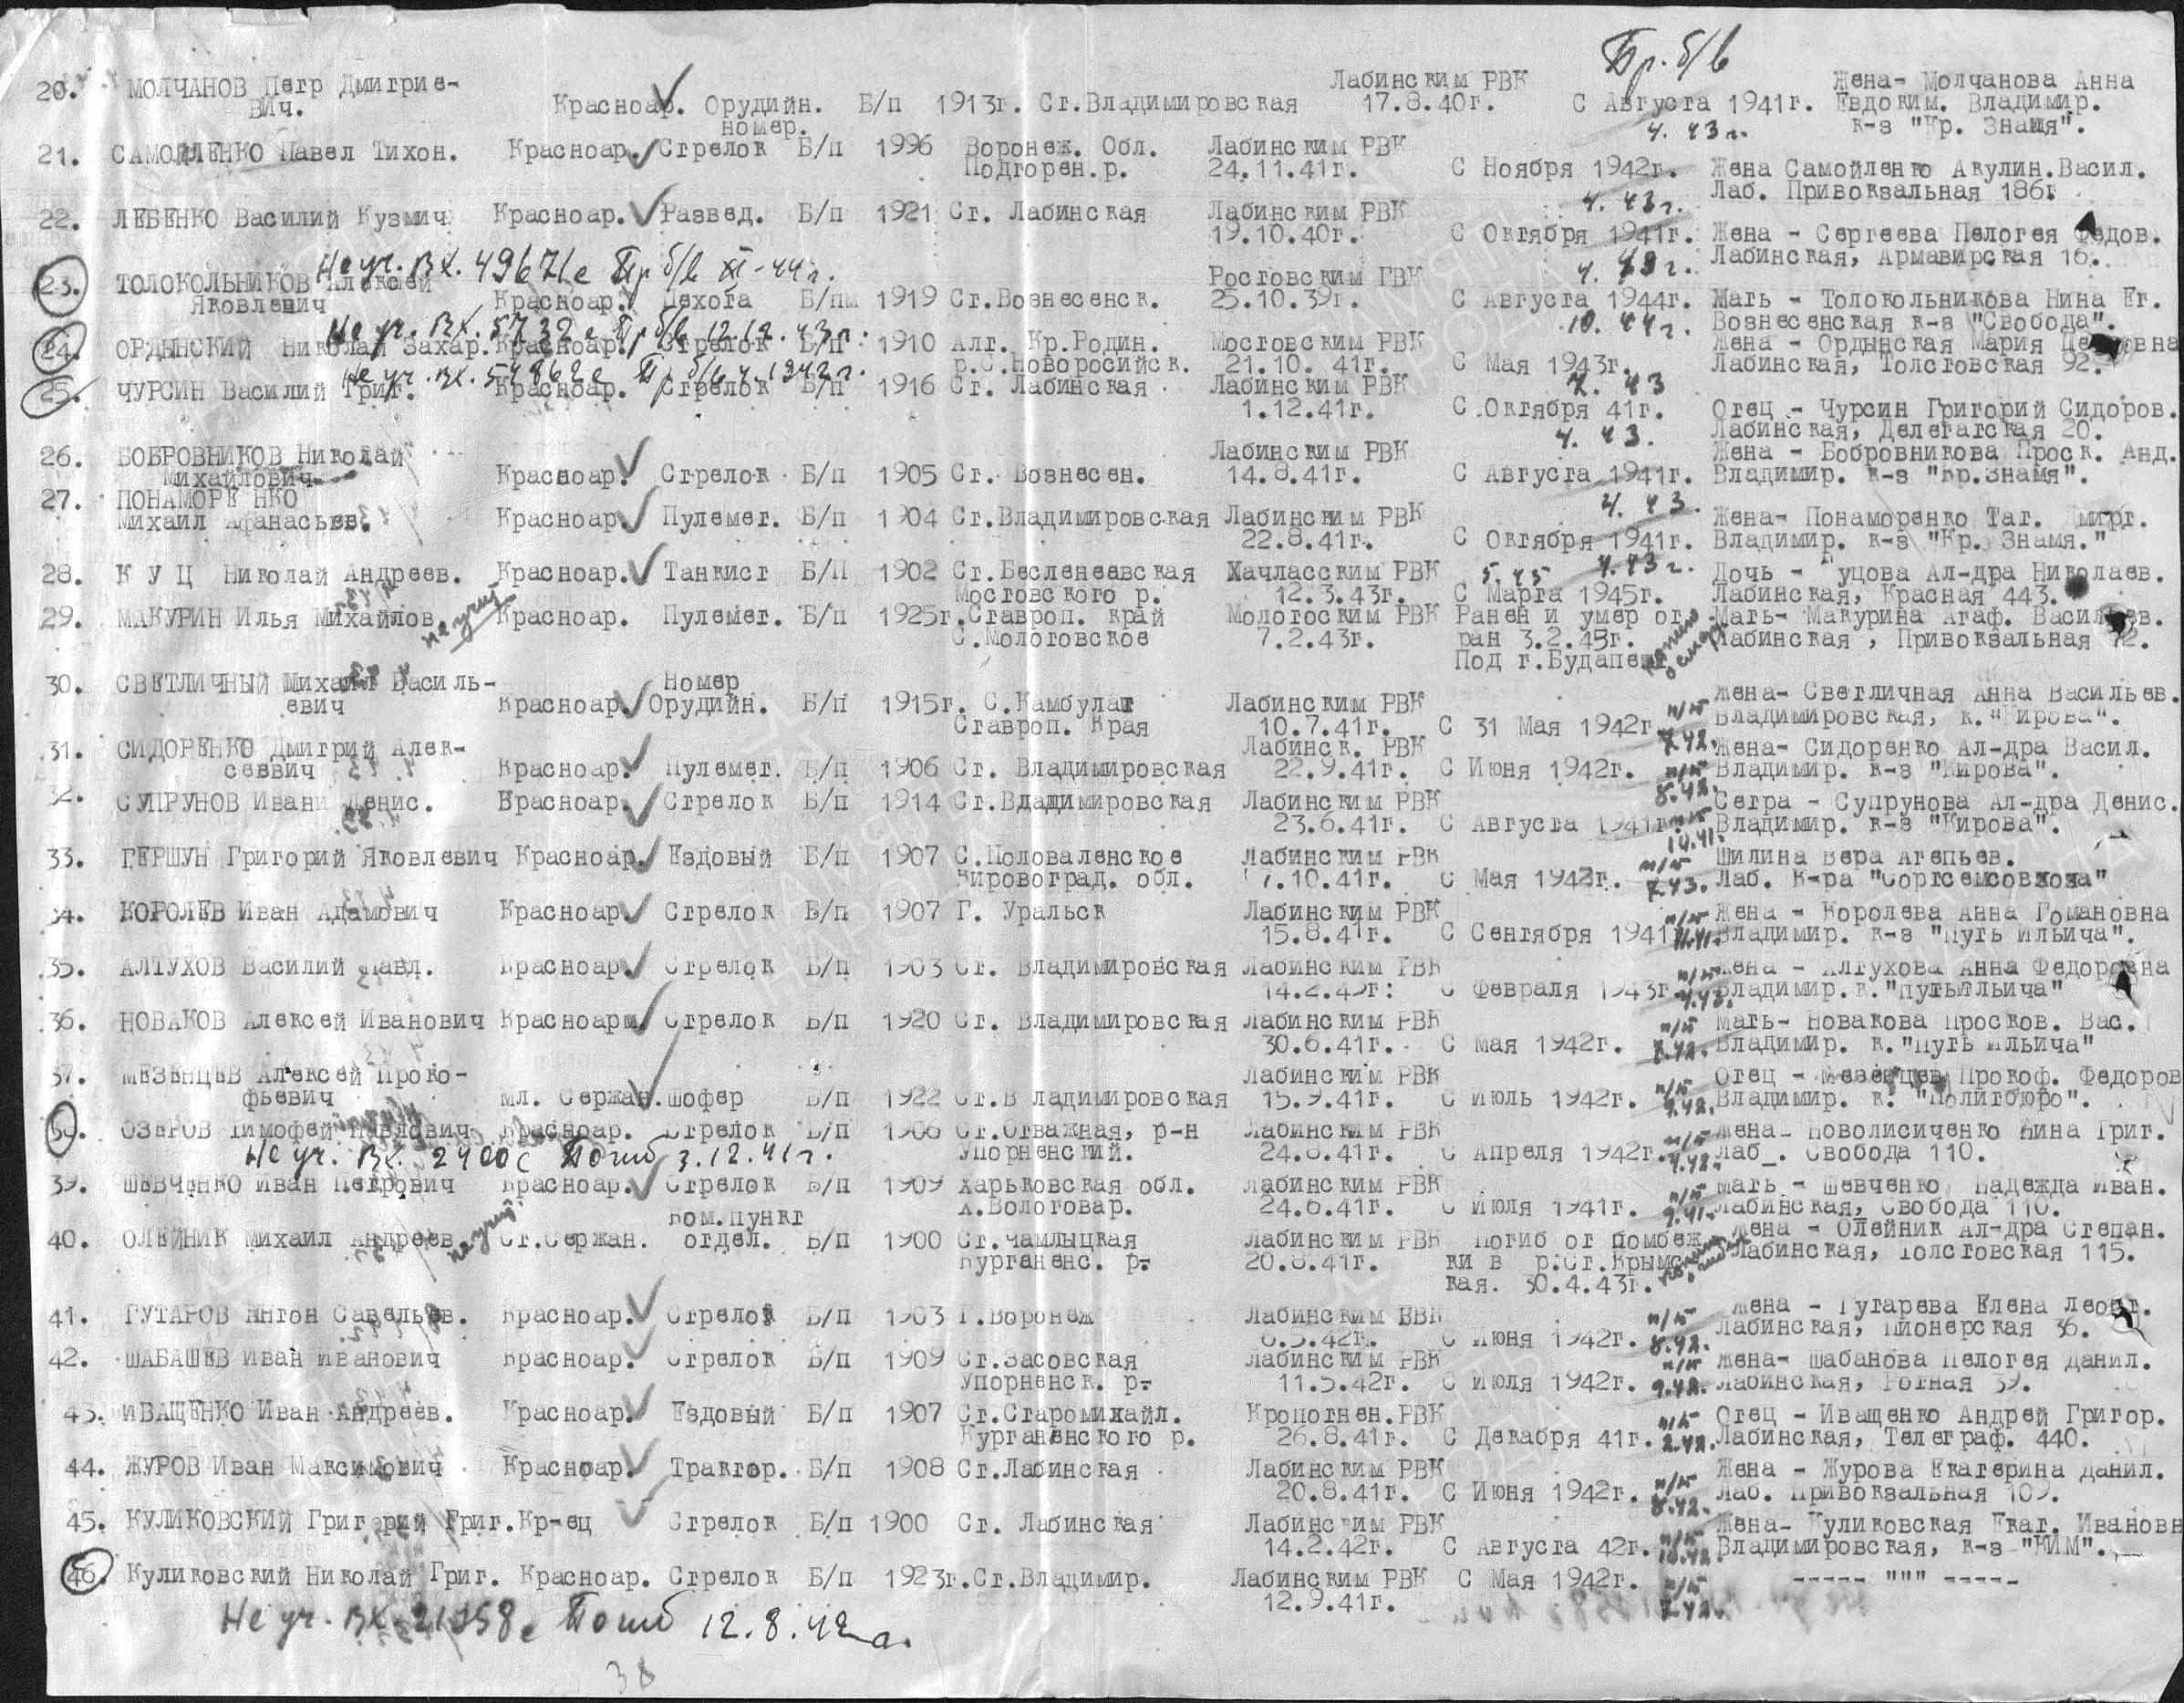 Пр. б/в
20. МОЛЧАНОВ Петр Дмитрие- Лабинским РВК Жена- Молчанова Анна
вич. Красноар. Орудийн. Б/п 1913г. Ст.Владимировская 17.8.40г. С Августа 1941г. Евдоким. Владимир.
номер. 4. 43г. к-з "Кр. Знамя".
21. САМОЙЛЕНКО Павел Тихон. Красноар. Стрелок Б/п 1996 Воронеж. Обл. Лабинским РВК
Подгорен.р. 24.11.41г. С Ноября 1942г. Жена Самойленко Акулин.Васил.
4. 43г. Лаб. Привокзальная 186г
22. ЛЕБЕНКО Василий Кузмич Красноар. Развед. Б/п 1921 Ст. Лабинская Лабинским РВК
19.10.40г. С Октября 1941г. Жена - Сергеева Пелогея Федов.
Не уч. Вх. 49671с Пр б/в XI-44г. 4. 43г. Лабинская, Армавирская 16.
23. ТОЛОКОЛЬНИКОВ Алексей Ростовским ГВК
Яковлевич Красноар. Пехота Б/пм 1919 Ст.Вознесенск. 25.10.39г. С Августа 1944г. Мать - Толокольникова Нина Ег.
Не уч. Вх. 5732с Пр б/в 12.12.43г. 10. 44г. Вознесенская к-з "Свобода".
24. ОРДЫНСКИЙ Николай Захар. Красноар. Стрелок Б/п 1910 Алт. Кр.Родин. Мостовским РВК Жена - Ордынская Мария
р.С.Новоросийск. 21.10. 41г. С Мая 1943г. Лабинская, Толстовская 92.
Не уч. Вх. 54862с Пр б/в 4.1942г. 7. 43
25. ЧУРСИН Василий Григ. Красноар. Стрелок Б/п 1916 Ст. Лабинская Лабинским РВК
1.12.41г. С.Октября 41г. Отец - Чурсин Григорий Сидоров.
4. 43. Лабинская, Делегатская 20.
26. БОБРОВНИКОВ Николай Лабинским РВК Жена - Бобровникова Проск. Анд.
Михайлович Красноар. Стрелок Б/п 1905 Ст. Вознесен. 14.8.41г. С Августа 1941г. Владимир. к-з "Кр.Знамя".
27. ПОНАМОРЕНКО 4. 43.
Михаил Афанасьев. Красноар. Пулемет. Б/п 1904 Ст.Владимировская Лабинским РВК Жена- Понаморенко Тат. Дмитр.
22.8.41г. С Октября 1941г. Владимир. к-з "Кр. Знамя."
28. К У Ц Николай Андреев. Красноар. Танкист Б/П 1902 Ст.Бесленеевская Хачласским РВК 5.45 4.43г. Дочь - Куцова Ал-дра Николаев.
Мостовского р. 12.3.43г. С Марта 1945г. Лабинская, Красная 443.
29. МАКУРИН Илья Михайлов. не учит. Красноар. Пулемет. Б/п 1925г. Ставроп. край Молотоским РВК Ранен и умер от Мать- Макурина Агаф. Васильев.
С.Молотовское 7.2.43г. ран 3.2.45г. Лабинская , Привокзальная 72.
Под г.Будапешт
30. СВЕТЛИЧНЫЙ Михаил Василь- Номер Жена- Светличная Анна Васильев.
евич Красноар. Орудийн. Б/п 1915г. С.Камбулат Лабинским РВК п/п Владимировская, к."Кирова".
Ставроп. Края 10.7.41г. С 31 Мая 1942г 7.42.
31. СИДОРЕНКО Дмитрий Алек- Лабинск. РВК Жена- Сидоренко Ал-дра Васил.
сеевич Красноар. Пулемет. Б/п 1906 Ст. Владимировская 22.9.41г. С Июня 1942г. п/п Владимир. к-з "Кирова".
32. СУПРУНОВ Иван Денис. Красноар. Стрелок Б/п 1914 Ст.Владимировская Лабинским РВК 8.42. Сетра - Супрунова Ал-дра Денис.
23.6.41г. С Августа 1941г. п/п Владимир. к-з "Кирова".
10.41.
33. ГЕРШУН Григорий Яковлевич Красноар. Ездовый Б/п 1907 С.Половаленское Лабинским РВК п/п Шилина Вера Агепьев.
Кировоград. обл. 17.10.41г. С Мая 1943г. 7.43. Лаб. К-ра "Сортсемсовхоза"
34. КОРОЛЕВ Иван Адамович Красноар. Стрелок Б/п 1907 Г. Уральск Лабинским РВК п/п Жена - Королева Анна Романовна
15.8.41г. С Сентября 1941 11.41. Владимир. к-з "Путь Ильича".
35. АЛТУХОВ Василий Павл. Красноар. Стрелок Б/п 1903 Ст. Владимировская Лабинским РВК п/п Жена - Алтухова Анна Федоровна
14.2.43г: С Февраля 1943г 4.43. Владимир.к."Путь Ильича"
36. НОВАКОВ Алексей Иванович Красноарм. Стрелок Б/п 1920 Ст. Владимировская Лабинским РВК п/п Мать- Новакова Просков. Вас.
30.6.41г. С Мая 1942г. 7.42. Владимир. к."Путь Ильича"
37. МЕЗЕНЦЕВ Алексей Проко- Лабинским РВК Отец - Мезенцев Прокоф. Федоров
фьевич Мл. Сержан. Шофер Б/п 1922 Ст.Владимировская 15.9.41г. С Июль 1942г. п/п 9.42. Владимир. к. "Политбюро".
38. ОЗЕРОВ Тимофей Павлович Красноар. Стрелок Б/п 1906 Ст.Отважная, р-н Лабинским РВК п/п Жена- Новолисиченко Нина Григ.
Не уч. Вх. 2400с Погиб 3.12.41г. Упорненский. 24.6.41г. С Апреля 1942г. 4.42. Лаб_. Свобода 110.
39. ШЕВЧЕНКО Иван Петрович Красноар. Стрелок Б/п 1909 Харьковская обл. Лабинским РВК п/п Мать - Шевченко Надежда Иван.
Х.Вологовар. 24.6.41г. С Июля 1941г. 9.41. Лабинская, Свобода 110.
Ком.пункт
40. ОЛЕЙНИК Михаил Андреев. не учит. Ст.Сержан. отдел. Б/п 1900 Ст.Чамлыцкая Лабинским РВК Погиб от бомбеж Жена - Олейник Ал-дра Степан.
Курганенс. р- 20.8.41г. ки в р.Ст.Крымс Лабинская, Толстовская 115.
кая. 30.4.43г.
41. ГУТАРОВ Антон Савельев. Красноар. Стрелой Б/п 1903 Г.Воронеж Лабинским ВВК п/п Жена - Гутарева Елена Леонт.
6.5.42г. С Июня 1942г. 8.42. Лабинская, Пионерская 36.
42. ШАБАШЕВ Иван Иванович Красноар. Стрелок Б/п 1909 Ст.Засовская Лабинским РВК п/п Жена- Шабанова Пелогея Данил.
Упорненск. р- 11.5.42г. С Июля 1942г. 9.42. Лабинская, Ротная 39.
43. ИВАЩЕНКО Иван Андреев. Красноар. Ездовый Б/п 1907 Ст.Старомихайл. Кропотнен.РВК п/п Отец - Иващенко Андрей Григор.
Курганенского р. 26.8.41г. С Декабря 41г. 2.42. Лабинская, Телеграф. 440.
44. ЖУРОВ Иван Максимович Красноар. Трактор. Б/п 1908 Ст.Лабинская Лабинским РВК п/п Жена - Журова Екатерина Данил.
20.8.41г. С Июня 1942г. 8.42. Лаб. Привокзальная 109.
45. КУЛИКОВСКИЙ Григорий Григ. Кр-ец Стрелок Б/п 1900 Ст. Лабинская Лабинским РВК Жена- Куликовская Екат. Ивановн
14.2.42г. С Августа 42г. п/п 10.42. Владимировская, к-з "КИМ".
46. Куликовский Николай Григ. Красноар. Стрелок Б/п 1923г. Ст.Владимир. Лабинским РВК С Мая 1942г. п/п ----- """ -----
12.9.41г. 7.42.
Не уч. Вх 21358с Погиб 12.8.42г.
38